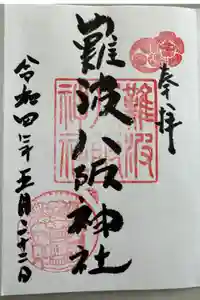 奉拝
難波八阪神社
難波
八阪
神社
令和四年五月二十二日